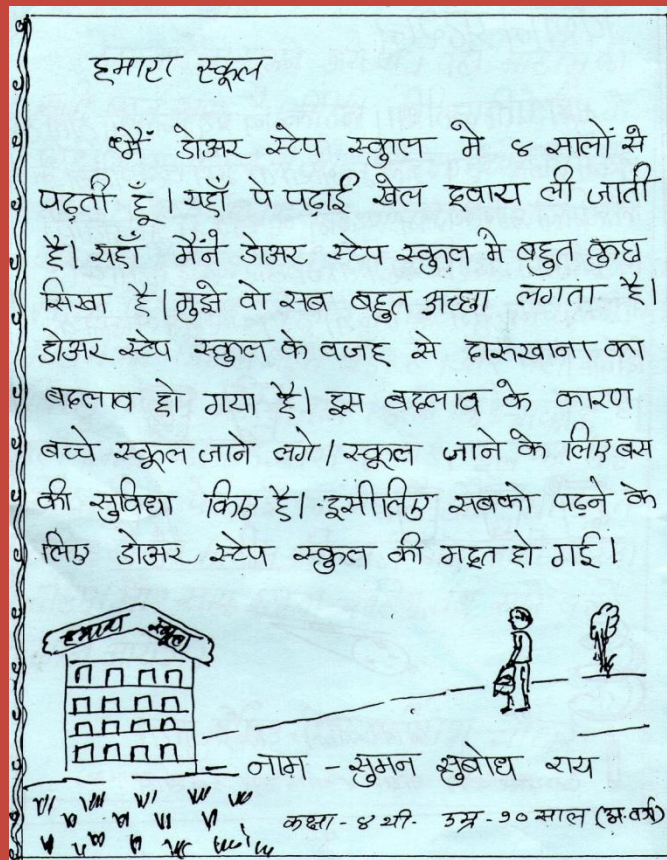 हमारा स्कूल
मैं डोअर स्टेप स्कुल मे ४ सालों से
पढ़ती हूँ। यहाँ पे पढ़ाई खेल दवारा ली जाती
है। यहाँ मैंने डोअर स्टेप स्कुल मे बहुत कुछ
सिखा है। मुझे वो सब बहुत अच्छा लगता है।
डोअर स्टेप स्कुल के वजह से दारुखाना का
बदलाव हो गया है। इस बदलाव के कारण
बच्चे स्कूल जाने लगे। स्कूल जाने के लिए बस
की सुविधा किए है। इसीलिए सबको पढ़ने के
लिए डोअर स्टेप स्कुल की मदत हो गई।
हमारा स्कूल
नाम - सुमन सुबोध राय
कक्षा - ४ थी. उम्र - १० साल (अ.वर्ग)